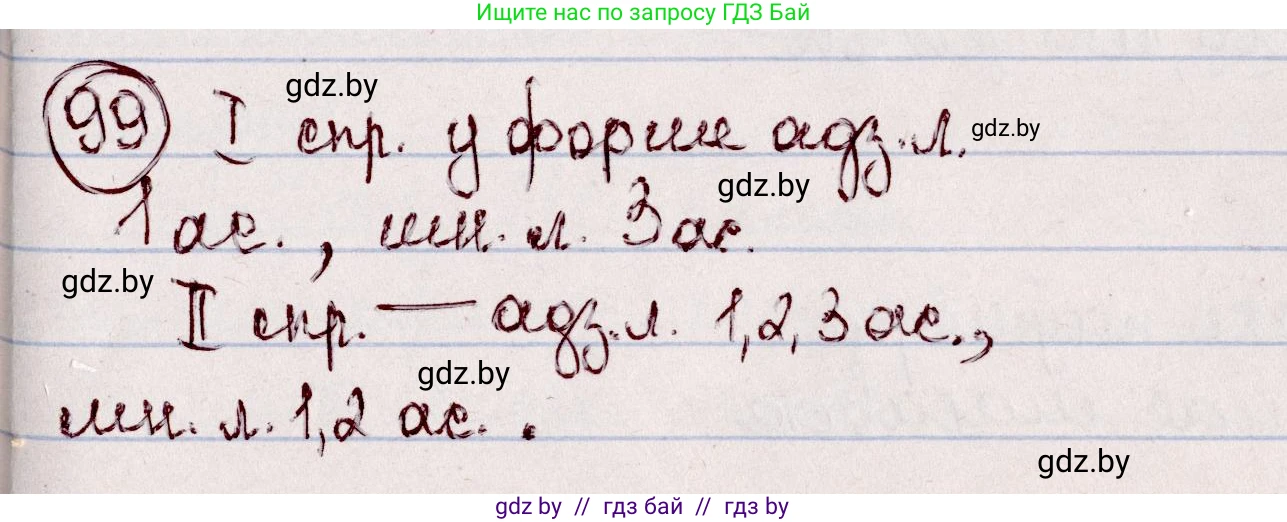 Ищите нас по запросу ГДЗ Бай
gdz.by
99 I спр. у форме адз.л.
gdz.by
gdz.by
1 ас., мн. л. 3 ас.
gdz.by
II спр. — адз.л. 1,2,3 ас.,
gdz.by
мн. л. 1,2 ас. .
gdz.by
gdz by // гдз бай // гдз by